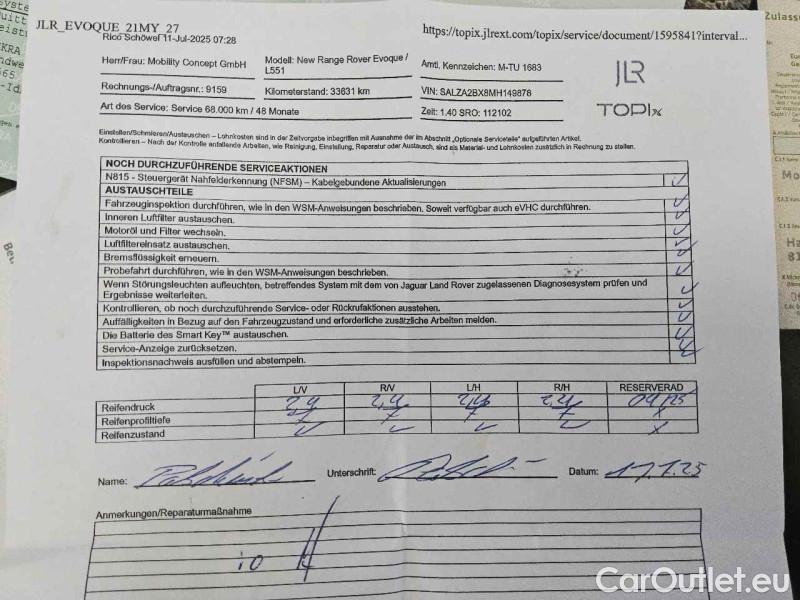 JLR_EVOQUE_21MY_27
https://topix.jlrext.com/topix/service/document/1595841?interval...
Rico Schöwel 11-Jul-2025 07:28
Herr/Frau: Mobility Concept GmbH
Modell: New Range Rover Evoque / L551
Amtl. Kennzeichen: M-TU 1683
JLR
Rechnungs-/Auftragsnr.: 9159
Kilometerstand: 33631 km
VIN: SALZA2BX8MH149876
TOPIx
Art des Service: Service 68.000 km / 48 Monate
Zeit: 1.40 SRO: 112102
Einstellen/Schmieren/Austauschen – Lohnkosten sind in der Zeitvorgabe inbegriffen mit Ausnahme der im Abschnitt „Optionale Serviceteile" aufgeführten Artikel.
Kontrollieren – Nach der Kontrolle anfallende Arbeiten, wie Reinigung, Einstellung, Reparatur oder Austausch, sind als Material- und Lohnkosten zusätzlich in Rechnung zu stellen.
NOCH DURCHZUFÜHRENDE SERVICEAKTIONEN
N815 - Steuergerät Nahfelderkennung (NFSM) – Kabelgebundene Aktualisierungen
AUSTAUSCHTEILE
Fahrzeuginspektion durchführen, wie in den WSM-Anweisungen beschrieben. Soweit verfügbar auch eVHC durchführen.
Inneren Luftfilter austauschen.
Motoröl und Filter wechseln.
Luftfiltereinsatz austauschen.
Bremsflüssigkeit erneuern.
Probefahrt durchführen, wie in den WSM-Anweisungen beschrieben.
Wenn Störungsleuchten aufleuchten, betreffendes System mit dem von Jaguar Land Rover zugelassenen Diagnosesystem prüfen und
Ergebnisse weiterleiten.
Kontrollieren, ob noch durchzuführende Service- oder Rückrufaktionen ausstehen.
Auffälligkeiten in Bezug auf den Fahrzeugzustand und erforderliche zusätzliche Arbeiten melden.
Die Batterie des Smart Key™ austauschen.
Service-Anzeige zurücksetzen.
Inspektionsnachweis ausfüllen und abstempeln.
L/V R/V L/H R/H RESERVERAD
Reifendruck 2,4 2,4 2,4 2,4 04/25
Reifenprofiltiefe 7 7 7 7 x
Reifenzustand x
Name: Unterschrift: Datum: 17.7.25
Anmerkungen/Reparaturmaßnahme
io
CarOutlet.eu